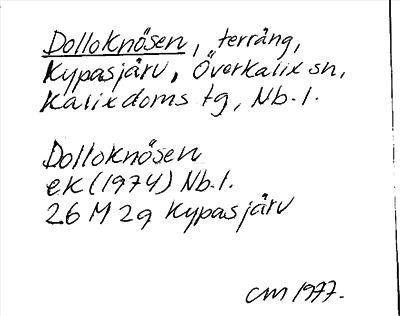 Dolloknösen, terräng,
Kypasjärv, Överkalix sn,
Kalix doms tg, Nb.l.
Dolloknösen
ek (1974) Nb.l.
26 M 2g Kypasjärv
CM 1977.